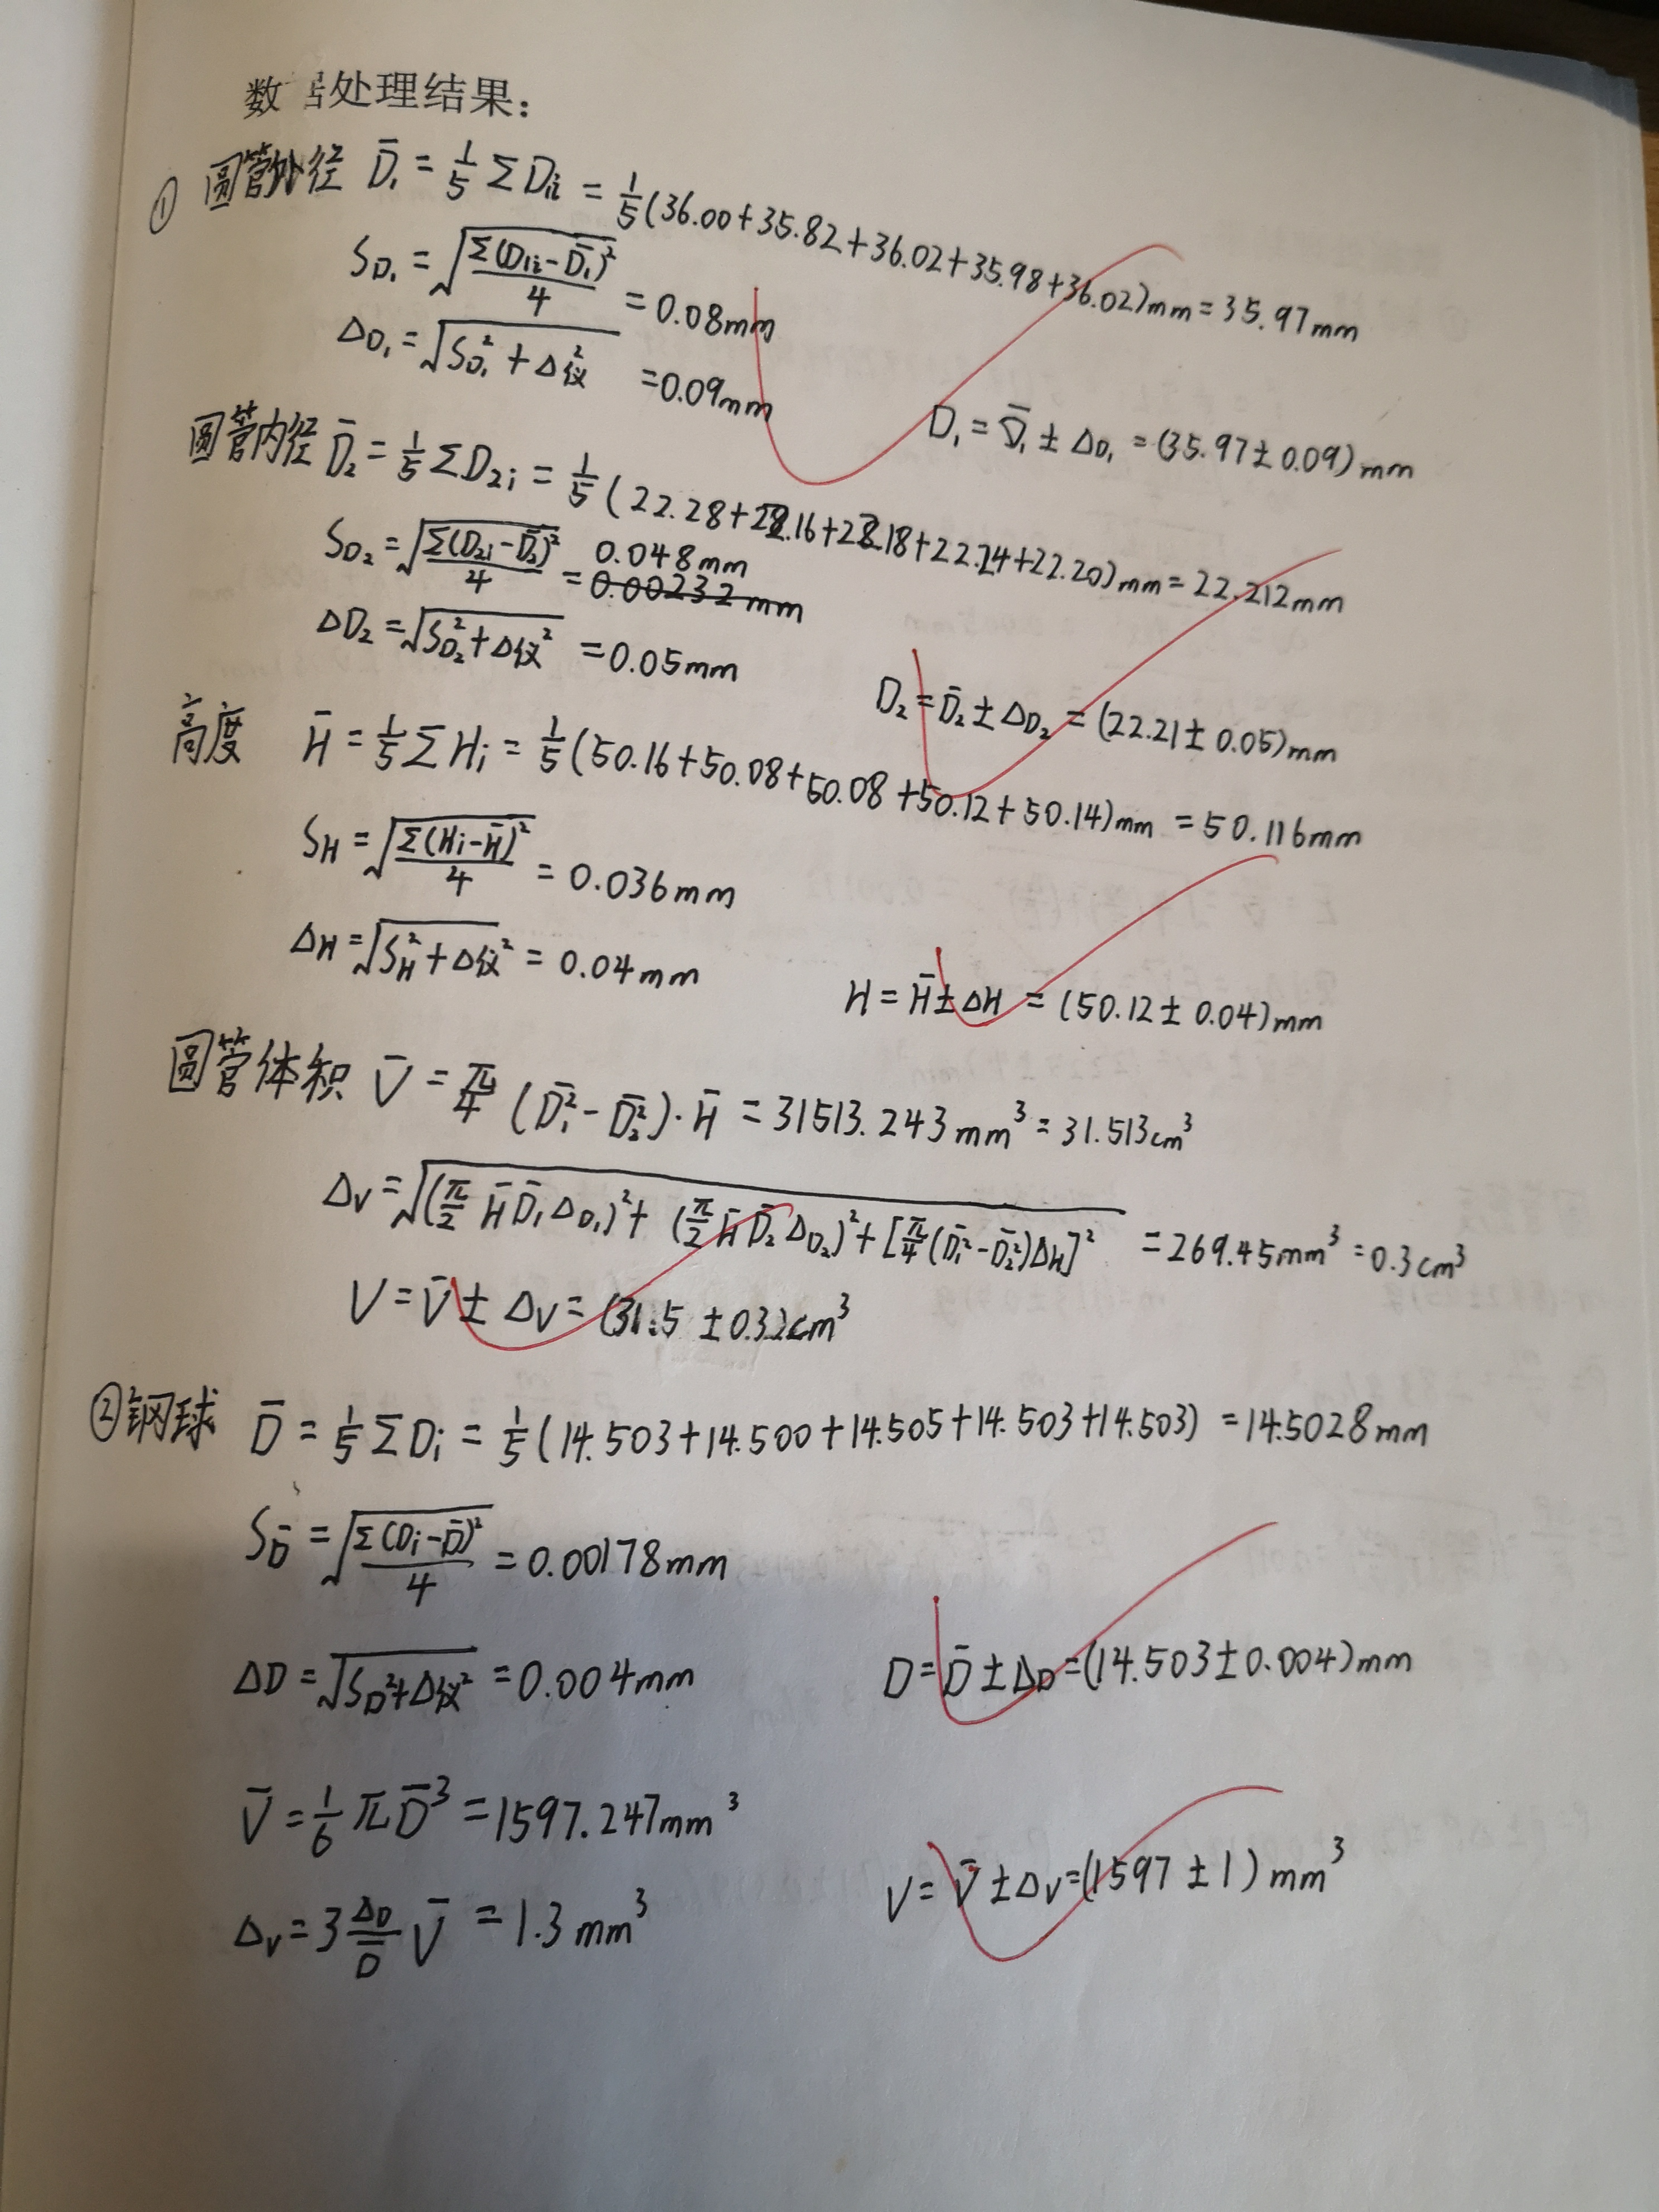 数据处理结果：
① 圆管外径 D̄₁ = 1/5 ΣD₁ᵢ = 1/5(36.00+35.82+36.02+35.98+36.02)mm = 35.97mm
S_D₁ = √(Σ(D₁ᵢ-D̄₁)²/4) = 0.08mm
Δ_D₁ = √(S_D₁² + Δ仪²) = 0.09mm
D₁ = D̄₁ ± Δ_D₁ = (35.97±0.09)mm
圆管内径 D̄₂ = 1/5 ΣD₂ᵢ = 1/5(22.28+22.16+22.18+22.24+22.20)mm = 22.212mm
S_D₂ = √(Σ(D₂ᵢ-D̄₂)²/4) = 0.048mm
0.00232mm
ΔD₂ = √(S_D₂² + Δ仪²) = 0.05mm
D₂ = D̄₂ ± Δ_D₂ = (22.21±0.05)mm
高度 H̄ = 1/5 ΣHᵢ = 1/5(50.16+50.08+50.08+50.12+50.14)mm = 50.116mm
S_H = √(Σ(Hᵢ-H̄)²/4) = 0.036mm
ΔH = √(S_H² + Δ仪²) = 0.04mm
H = H̄ ± ΔH = (50.12±0.04)mm
圆管体积 V̄ = π/4 (D̄₁² - D̄₂²)·H̄ = 31513.243mm³ = 31.513cm³
Δ_V = √((π/2 H̄D̄₁Δ_D₁)² + (π/2 H̄D̄₂Δ_D₂)² + [π/4(D̄₁²-D̄₂²)ΔH]²) = 269.45mm³ = 0.3cm³
V = V̄ ± Δ_V = (31.5±0.3)cm³
② 钢球 D̄ = 1/5 ΣDᵢ = 1/5(14.503+14.500+14.505+14.503+14.503) = 14.5028mm
S_D̄ = √(Σ(Dᵢ-D̄)²/4) = 0.00178mm
ΔD = √(S_D² + Δ仪²) = 0.004mm
D = D̄ ± Δ_D = (14.503±0.004)mm
V̄ = 1/6 πD̄³ = 1597.247mm³
V = V̄ ± Δ_V = (1597±1)mm³
Δ_V = 3 Δ_D/D̄ V̄ = 1.3mm³